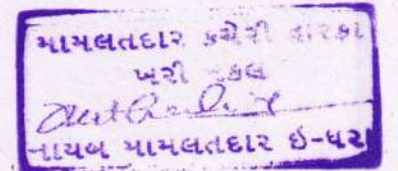 મામલતદાર કચેરી દ્વારકા
ખરી નકલ
નાયબ મામલતદાર ઇ-ધરા